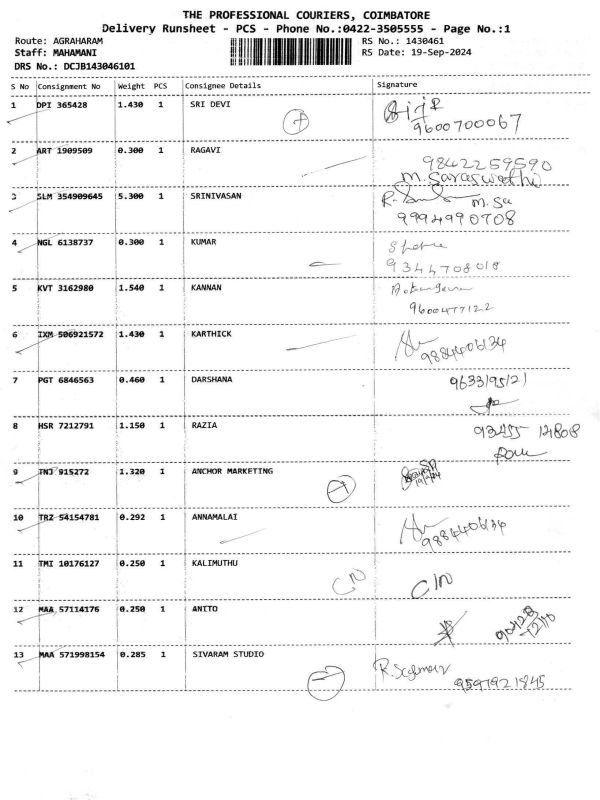 THE PROFESSIONAL COURIERS, COIMBATORE
Delivery Runsheet - PCS - Phone No.:0422-3505555 - Page No.:1
Route: AGRAHARAM RS No.: 1430461
Staff: MAHAMANI RS Date: 19-Sep-2024
DRS No.: DCJB143046101
S No Consignment No Weight PCS Consignee Details Signature
1 DPI 365428 1.430 1 SRI DEVI
9600700067
2 ART 1909509 0.300 1 RAGAVI 9842259590
M. Saraswathi
3 SLM 354909645 5.300 1 SRINIVASAN
9994990708
4 NGL 6138737 0.300 1 KUMAR
9344708018
5 KVT 3162980 1.540 1 KANNAN
9600477122
6 IXM 506921572 1.430 1 KARTHICK
9884406134
7 PGT 6846563 0.460 1 DARSHANA 9633195121
8 HSR 7212791 1.150 1 RAZIA 93455 12808
9 TNJ 915272 1.320 1 ANCHOR MARKETING
10 TRZ 54154781 0.292 1 ANNAMALAI
9884406134
11 TMI 10176127 0.250 1 KALIMUTHU
C/N C/N
12 MAA 57114176 0.250 1 ANITO
13 MAA 571998154 0.285 1 SIVARAM STUDIO
9597921845